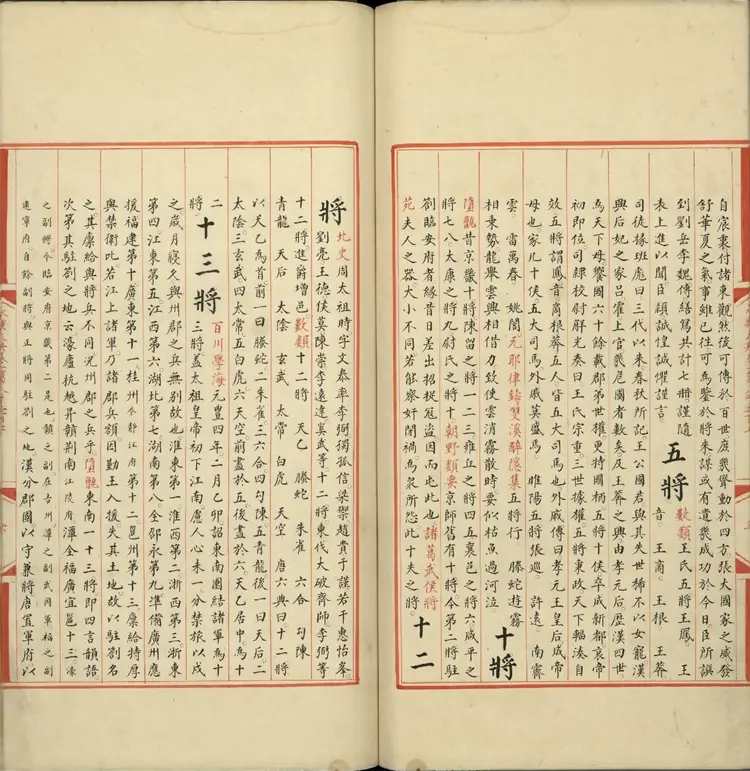 自宸衷付諸東觀然後可傳於百世庶幾聳動於四方張大國家之威發
舒華夏之氣事雖已往可為鑒於將來謀或有遺幾成功於今日臣所譔
到劉岳李魏傳繕寫共計七冊謹隨
表上進以聞臣頴誠惶誠懼謹言
五將
數類王氏五將王鳳 王
音 王商 王根 王莽
司徒掾班彪曰三代以來春秋所記王公國君與其失世稀不以女寵漢
興后妃之家呂霍上官幾危國者數矣及王莽之興由孝元后歷漢四世
為天下母饗國六十餘載群弟世權更持國柄五將十侯卒成新都哀帝
初即位司隸校尉解光奏曰王氏宗重三世據權五將秉政天下輻湊自
效五將謂鳳音商根莽五人皆大司馬也外戚傳曰孝元王皇后成帝
母也家凡十侯五大司馬外戚莫盛焉 睢陽五將張巡 許遠 南霽
雲 雷萬春 姚誾 元耶律鑄雙溪醉隱集五將行 騰蛇遊霧
相乘勢龍舉雲興相借力致使雲消霧散時要似枯魚過河泣
十將
墮甑昔京畿十將陳留之將一二三雍丘之將四五襄邑之將六咸平之
將七八太康之將九尉氏之將十朝野類要京師舊有十將今第二將駐
劄臨安府者緣昔日差出招捉寇盜因而屯此也諸葛武侯將
苑夫人之器大小不同若能察奸闚禍為眾所怨此十夫之將
十二
將
北史周太祖時字文泰率李弼獨孤信梁禦趙貴于謹若干惠怡峯
劉亮王德侯莫陳崇李遠達奚武等十二將東伐大破齊師李弼等
十二將進爵增邑數類十二將 天乙 騰蛇 朱雀 六合 勾陳
青龍 天后 太陰 玄武 太常 白虎 天空 唐六典曰十二將
以天乙為首前一曰騰蛇二朱雀三六合四勾陳五青龍後一曰天后二
太陰三玄武四太常五白虎六天空前盡於五後盡於六天乙居中為十
二
將
十三將
百川學海元豐四年二月乙卯詔東南團結諸軍為十
三將蓋太祖皇帝初下江南慮人心未一分禁旅以戍
之歲月寖久與州郡之兵無別故也淮東第一淮西第二浙西第三浙東
第四江東第五江西第六湖北第七湖南第八全邵永第九準備廣州應
援福建第十廣東第十一桂州今靜江府第十二邕州第十三廩給特厚
與禁衛吡若江上諸軍乃諸郡兵額因勤王入援失其土地故以駐劄名
之其廩給與將兵不同況州郡之兵乎墮甑東南一十三將即四言韻語
次第其駐劄之地云濠廬杭越昇贛荆南江陵府潭全福廣宜邕十三濠
之副將今臨安府京畿第二是也贛之副在吉州潭之副武岡軍福之副
建寧府自餘副將與正將同駐劄之地 漢分郡國以守兼將唐置軍府以